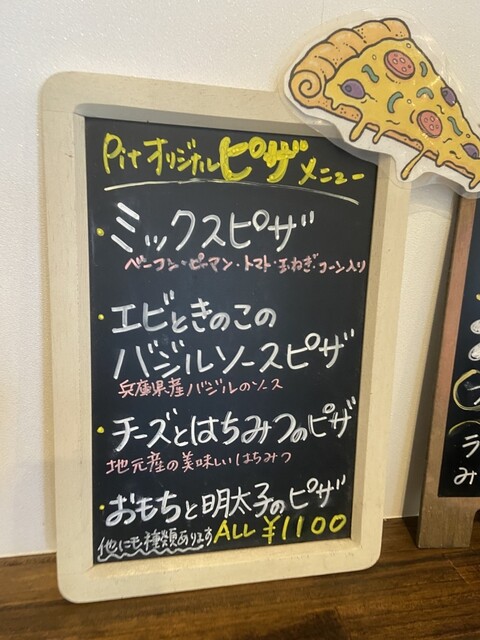 Pit オリジナル ピザ メニュー
・ミックスピザ
ベーコン・ピーマン・トマト・玉ねぎ・コーン入り
・エビときのこの
バジルソースピザ
兵庫県産バジルのソース
・チーズとはちみつのピザ
地元産の美味しいはちみつ
・おもちと明太子のピザ
他にも種類あります ALL ¥1100
ラ
み